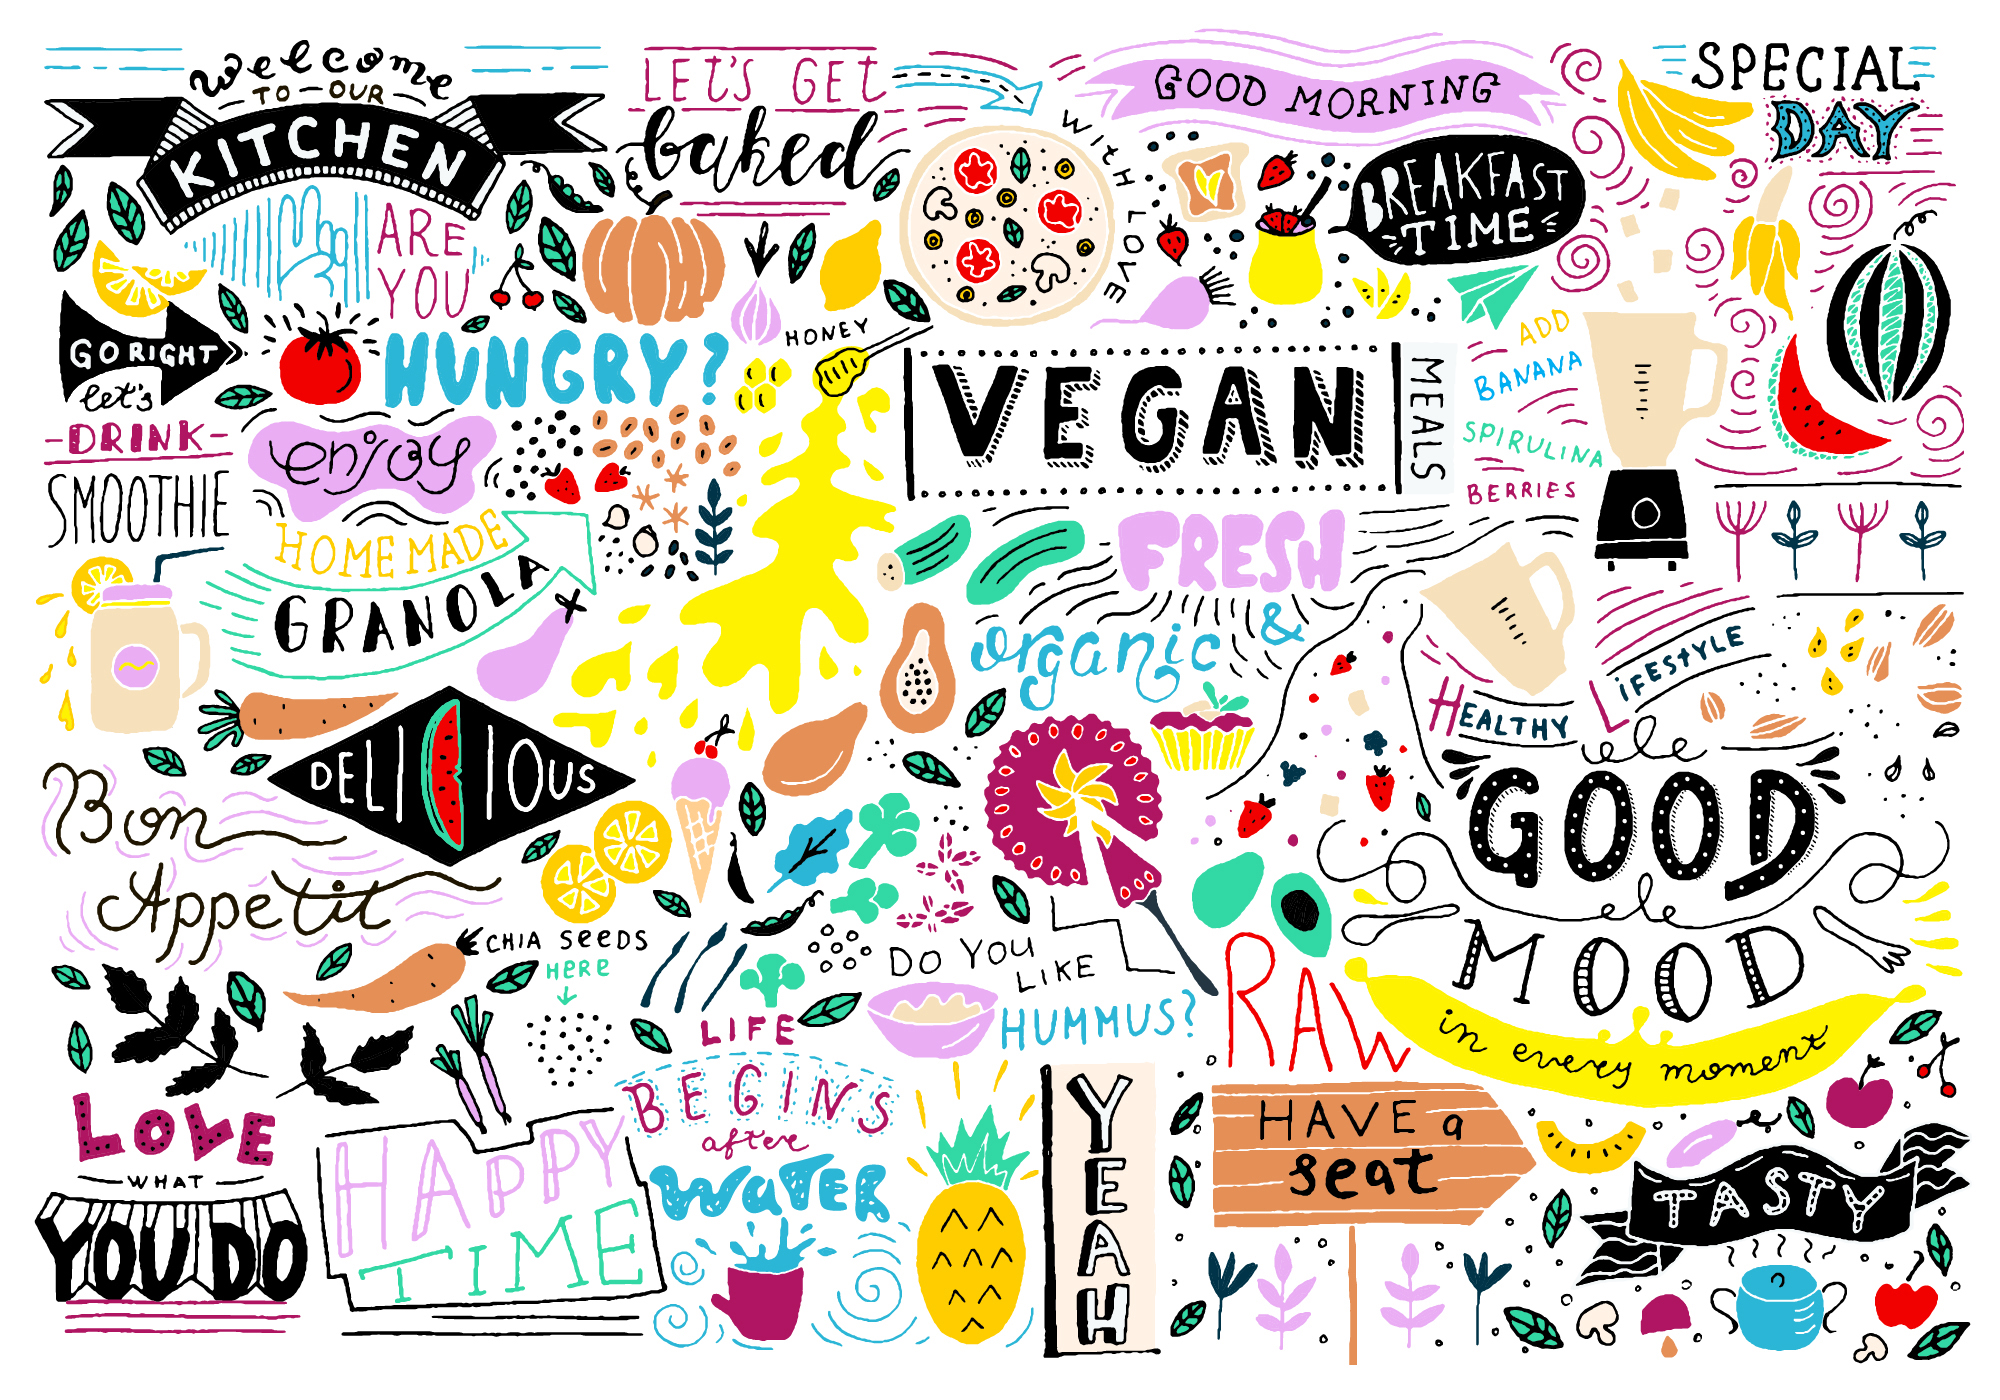 Welcome
TO - OUR
KITCHEN
ARE
YOU
HUNGRY?
LET'S GET
baked
WITH LOVE
GOOD MORNING
BREAKFAST
TIME
SPECIAL
DAY
GO RIGHT
let's
-DRINK-
SMOOTHIE
enjoy
HOMEMADE
GRANOLA
HONEY
VEGAN
MEALS
ADD
BANANA
SPIRULINA
BERRIES
FRESH
&
organic
HEALTHY
LIFESTYLE
DELICIOUS
Bon
Appetit
CHIA SEEDS
HERE
DO YOU
LIKE
HUMMUS?
RAW
GOOD
MOOD
in every moment
LIFE
BEGINS
after
WATER
LOVE
- WHAT -
YOU DO
HAPPY
TIME
YEAH
HAVE a
seat
TASTY